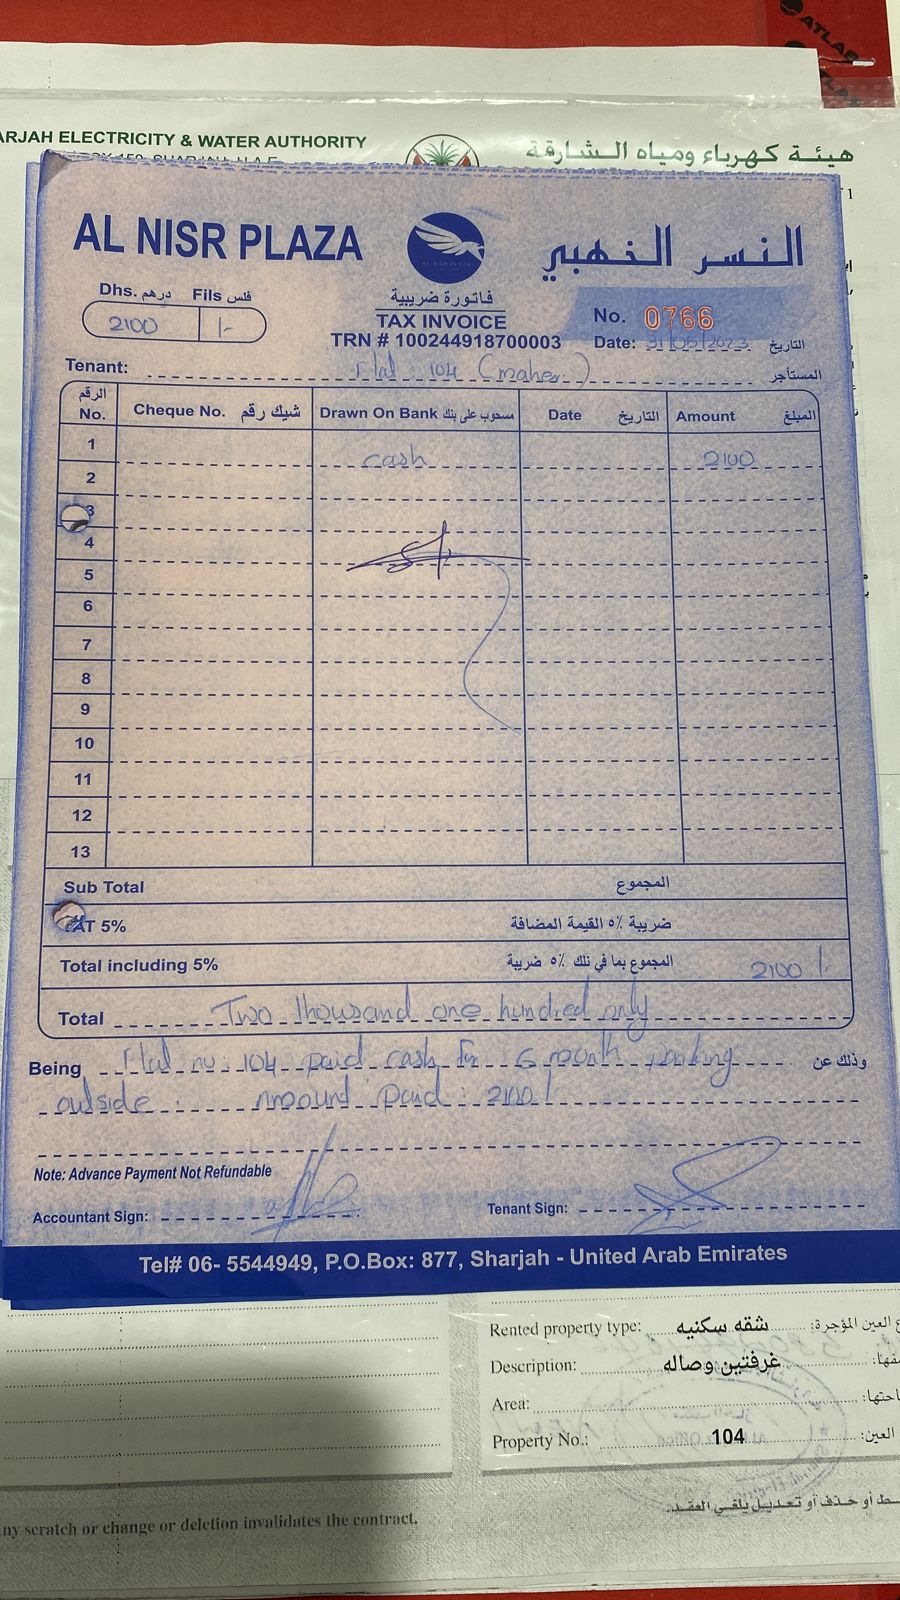 ATLAS
ARJAH ELECTRICITY & WATER AUTHORITY
هيئـة كهرباء ومياه الـشارقة
AL NISR PLAZA
AL NISR PLAZA
النسر الذهبي
Dhs. درهم Fils فلس
2100 /-
فاتورة ضريبية
TAX INVOICE
TRN # 100244918700003
No. 0766
Date: 31/05/2023 التاريخ
Tenant: Flat: 104 (maher) المستأجر
الرقم No. Cheque No. شيك رقم Drawn On Bank مسحوب على بنك Date التاريخ Amount المبلغ
1 cash 2100
2
3
4
5
6
7
8
9
10
11
12
13
Sub Total المجموع
VAT 5% ضريبة ٥٪ القيمة المضافة
Total including 5% المجموع بما في ذلك ٥٪ ضريبة 2100 /-
Total Two thousand one hundred only
Being Flat no: 104 paid cash for 6 month parking وذلك عن
outside. Amount Paid: 2100/
Note: Advance Payment Not Refundable
Accountant Sign: Tenant Sign:
Tel# 06- 5544949, P.O.Box: 877, Sharjah - United Arab Emirates
Rented property type: شقه سكنيه ع العين المؤجرة:
Description: غرفتين وصاله
Area:
Property No.: 104 العين:
ny scratch or change or deletion invalidates the contract.
أو حذف أو تعديل يلغي العقد.